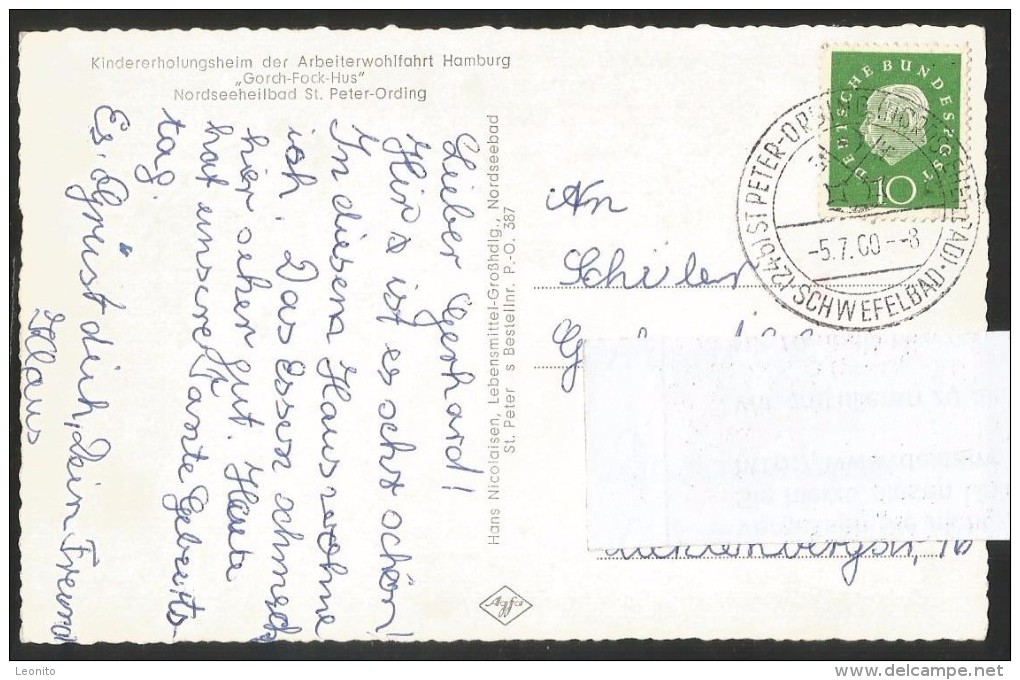 Kindererholungsheim der Arbeiterwohlfahrt Hamburg
„Gorch-Fock-Hus"
Nordseeheilbad St. Peter-Ording
Lieber Gerhard!
Hir ist es sehr schön!
In diesem Haus wohne
ich. Das Essen schmeckt
hier sehr gut. Heute
hat unsere Tante Geburts-
tag.
Es Grüsst dich, Dein Freund
Klaus
Hans Nicolaisen, Lebensmittel-Großhdlg., Nordseebad
St. Peter s Bestellnr. P.-O. 387
Agfa
DEUTSCHE BUNDESPOST
10
(24b) ST PETER-ORDING
-5.7.60--8
SCHWEFELBAD
An
Schüler
Leonito
www.delcampe.net